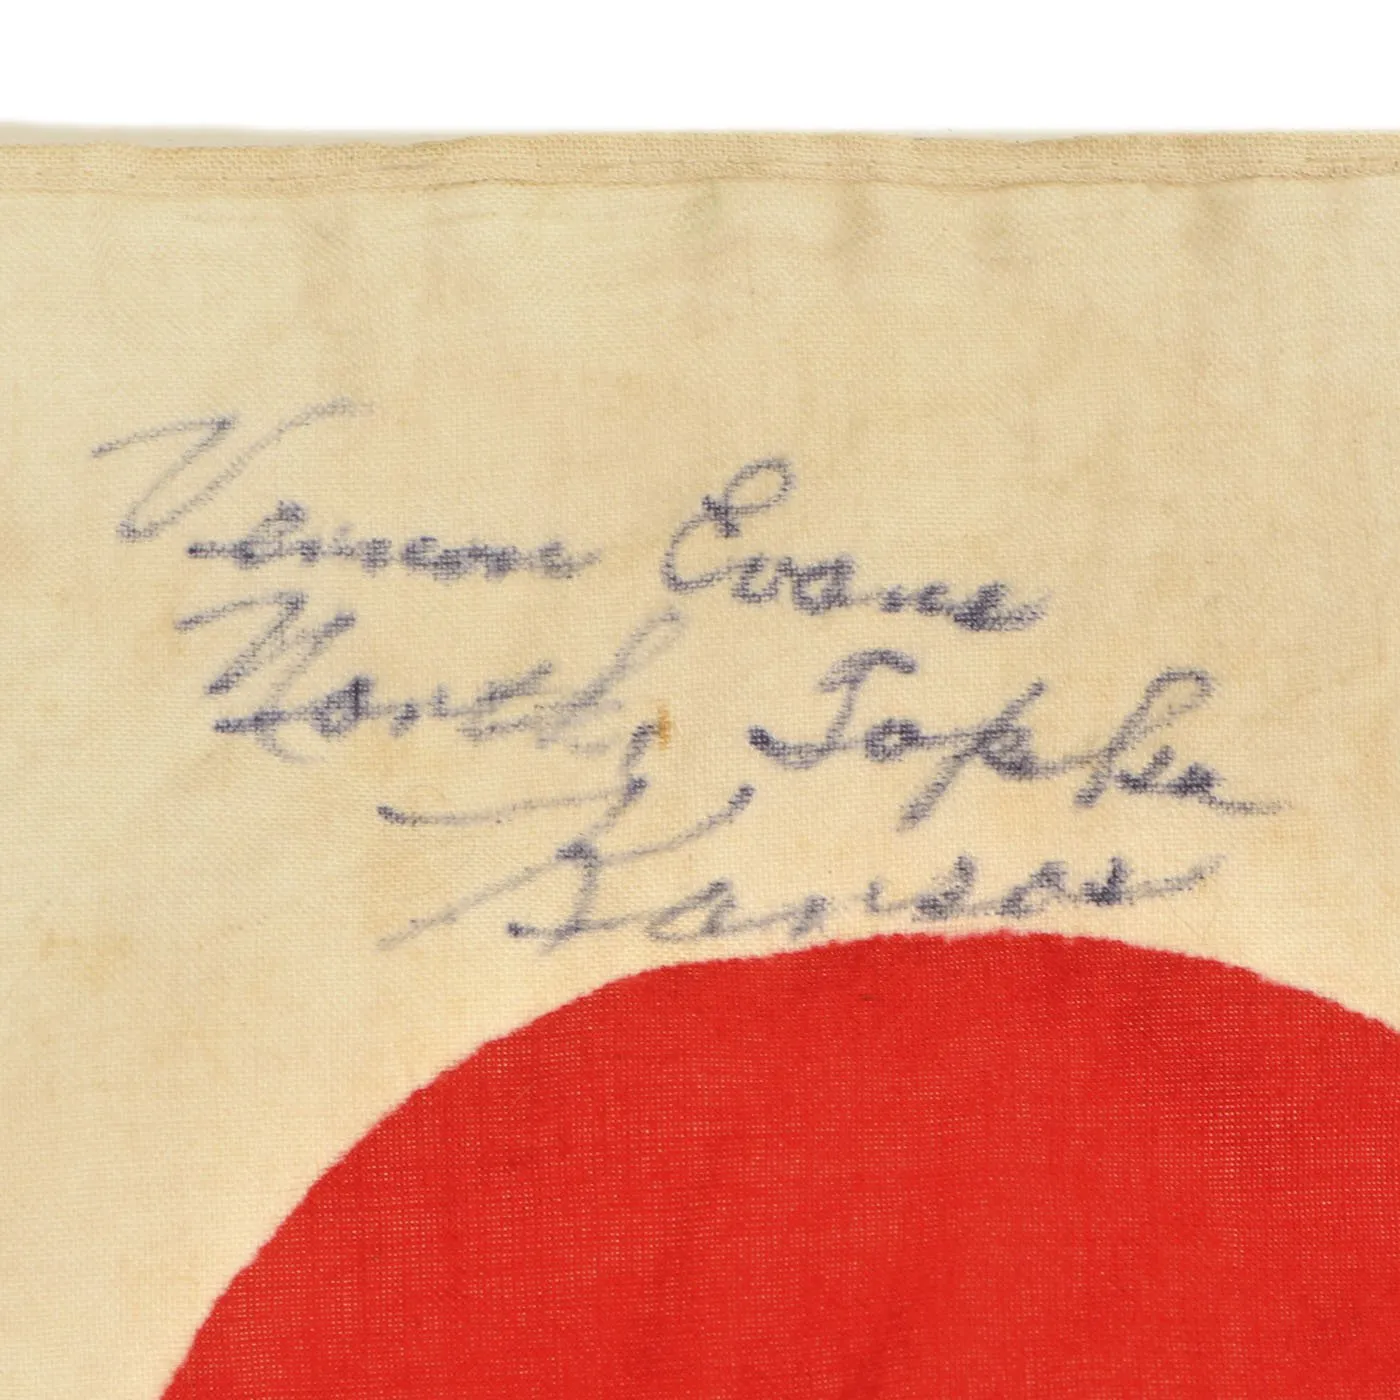 Vernon Evans
North Topeka
Kansas